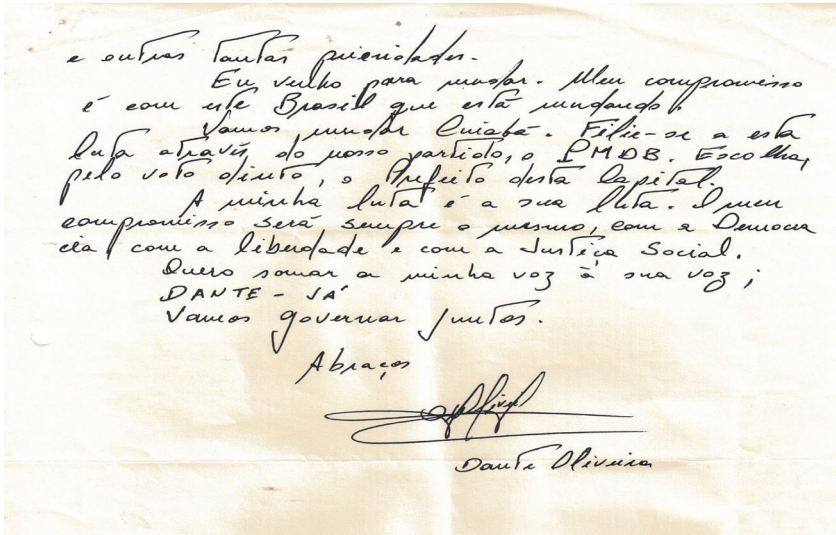 e outras tantas prioridades.
Eu venho para mudar. Meu compromisso
é com este Brasil que está mudando.
Vamos mudar Cuiabá. Filie-se a esta
luta através do nosso partido, o PMDB. Escolha,
pelo voto direto, o Prefeito desta Capital.
A minha luta é a sua luta. O meu
compromisso será sempre o mesmo, com a Democra
cia, com a liberdade e com a Justiça Social.
Quero somar a minha voz à sua voz;
DANTE - JÁ
Vamos governar juntos.
Abraços
Dante Oliveira